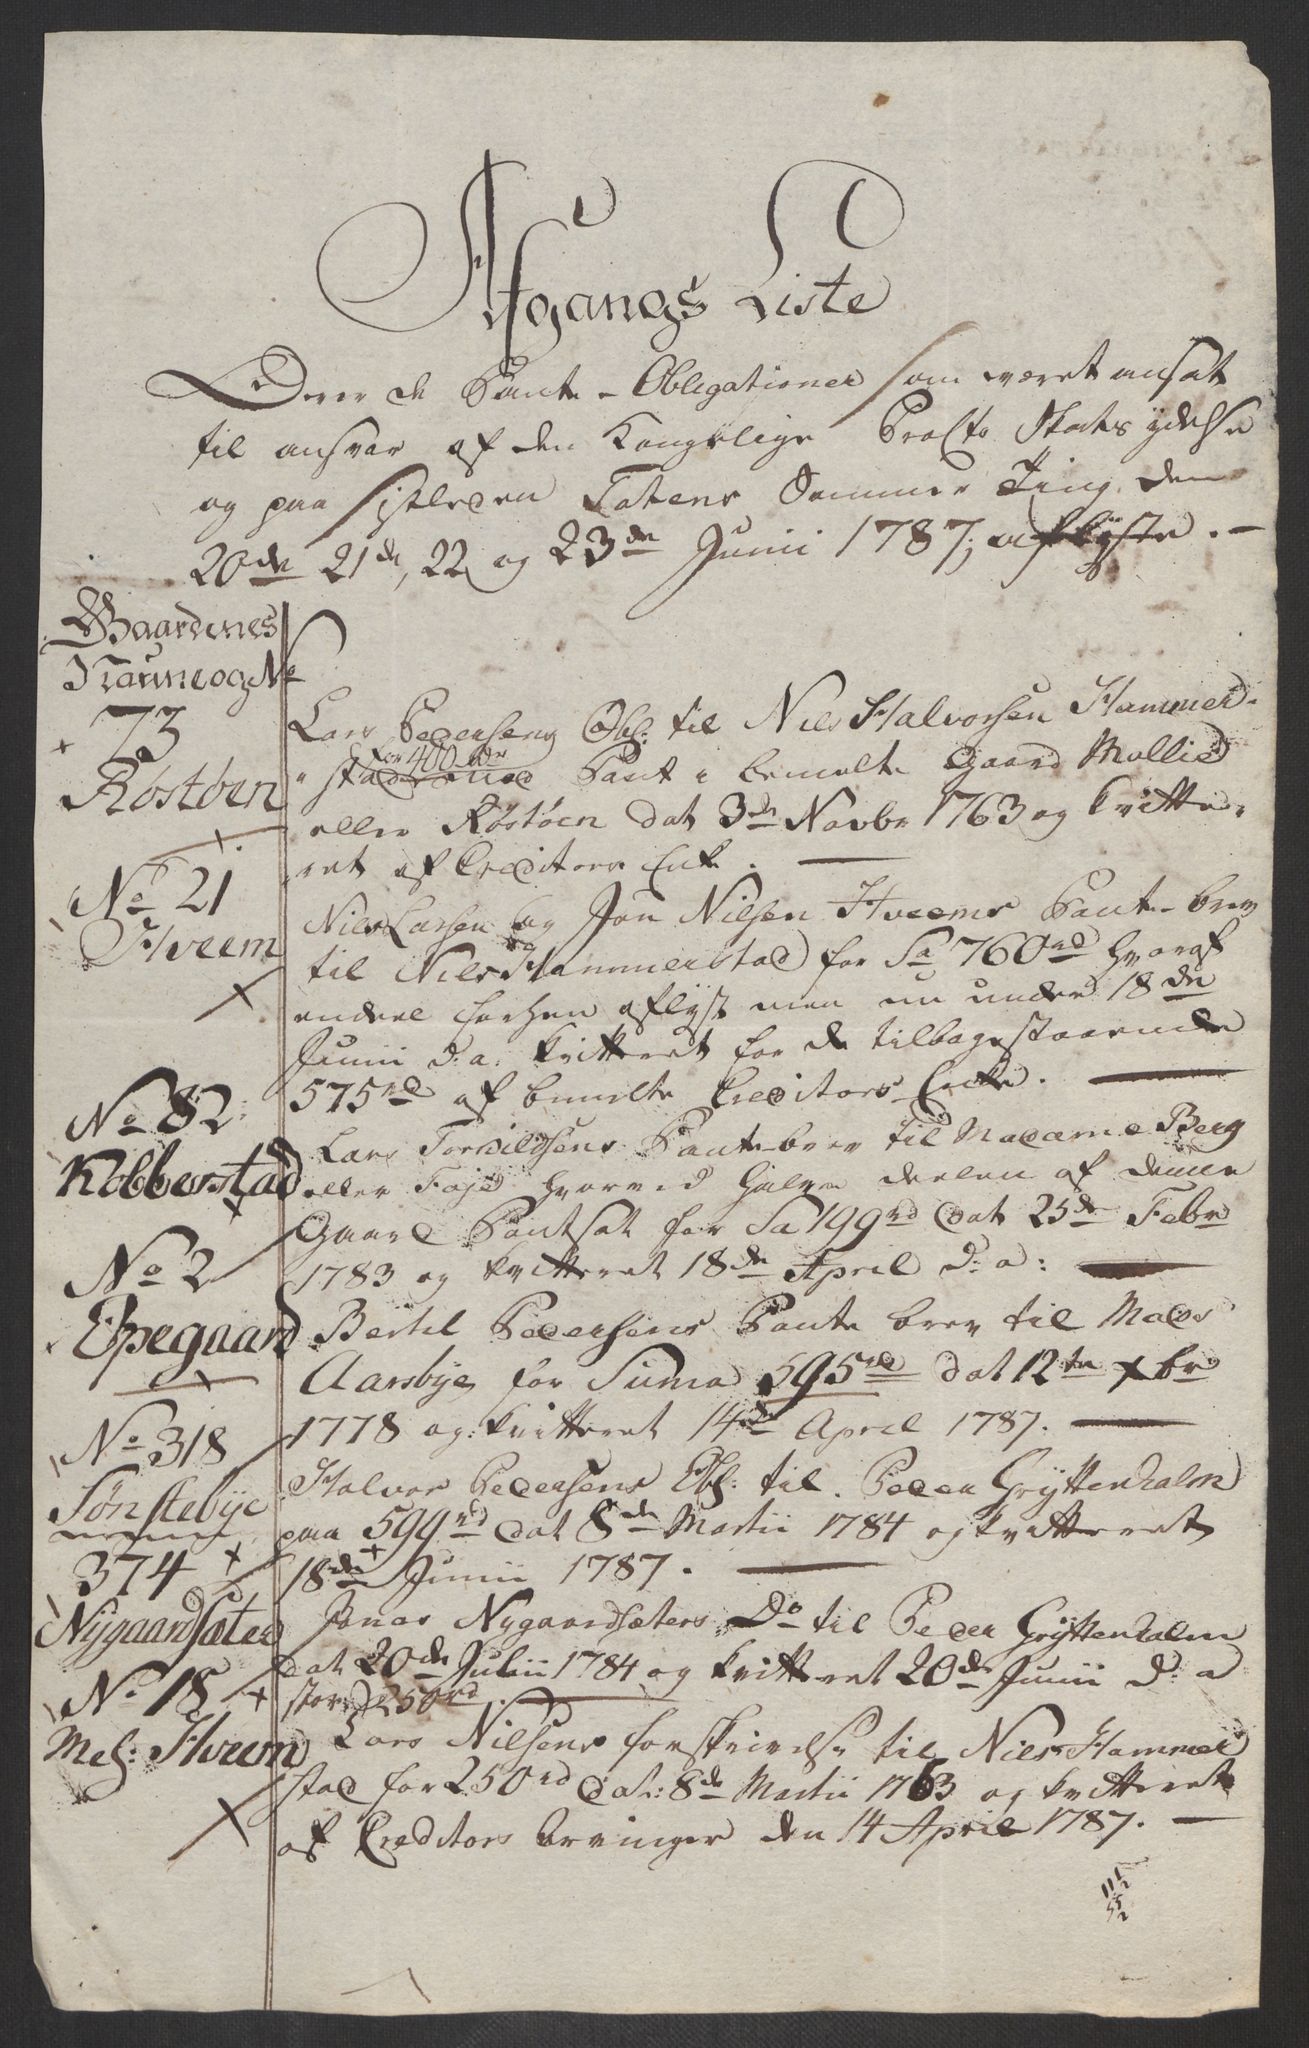 Afgangs Liste
Over de Pante-Obligationer som været ansat
til ansvar af den Kongelige Procto Skats ydelse
og paa sistleden Totens Sommer Ting den
20de 21de, 22 og 23de Junii 1787; aflyste. —
Gaardenes
Naune og No
73
Røstøen
Lars Pedersens Obl: til Niels Halvorsen Hammer-
for 400 rdr
stad med Pant i bemelte Gaard Mollie
eller Røstøen dat 3de Novbr 1763 og kvitte-
ret af Creditors Enke. —
No 21
Hveem
Niels Larsen og Jon Nilsen Hveems Pante-brev
til Niels Hammerstad for Sa 760rd hvoraf
endeel forhen aflyst men nu under 18de
Junii d: a. kvitteret for de tilbagestaaende
575rd af bemelte Creditors Enke. —
No 82
Kobberstad
Lars Torvildsens Pantebrev til Madame Berg
eller Foje hvorved halve deelen af denne
Gaard Pantsat for Sa 199rd dat 25de Febr
1783 og kvitteret 18de April d: a: —
No 2
Epegaard
Bertel Pedersens Pante brev til Mads
Aarsbye for Suma 595rd dat 12te xbr
1778 og kvitteret 14de April 1787. —
No 318
Sønstebye
Halvor Pedersens Obl: til Peder Gryttenholm
paa 599rd dat 8de Martii 1784 og kvitteret
18de Junii 1787. —
374
Nygaardsæter
Jonas Nygaardsæters Do til Peder Gryttenholm
dat 20de Julii 1784 og kvitteret 20de Junii d: a
stor 250rd —
No 18
Mel: Hveem
Lars Nilsens forskrivelse til Niels Hammer
stad for 250rd dat: 8de Martii 1763 og kvitteret
af Creditors arvinger den 14 April 1787. —